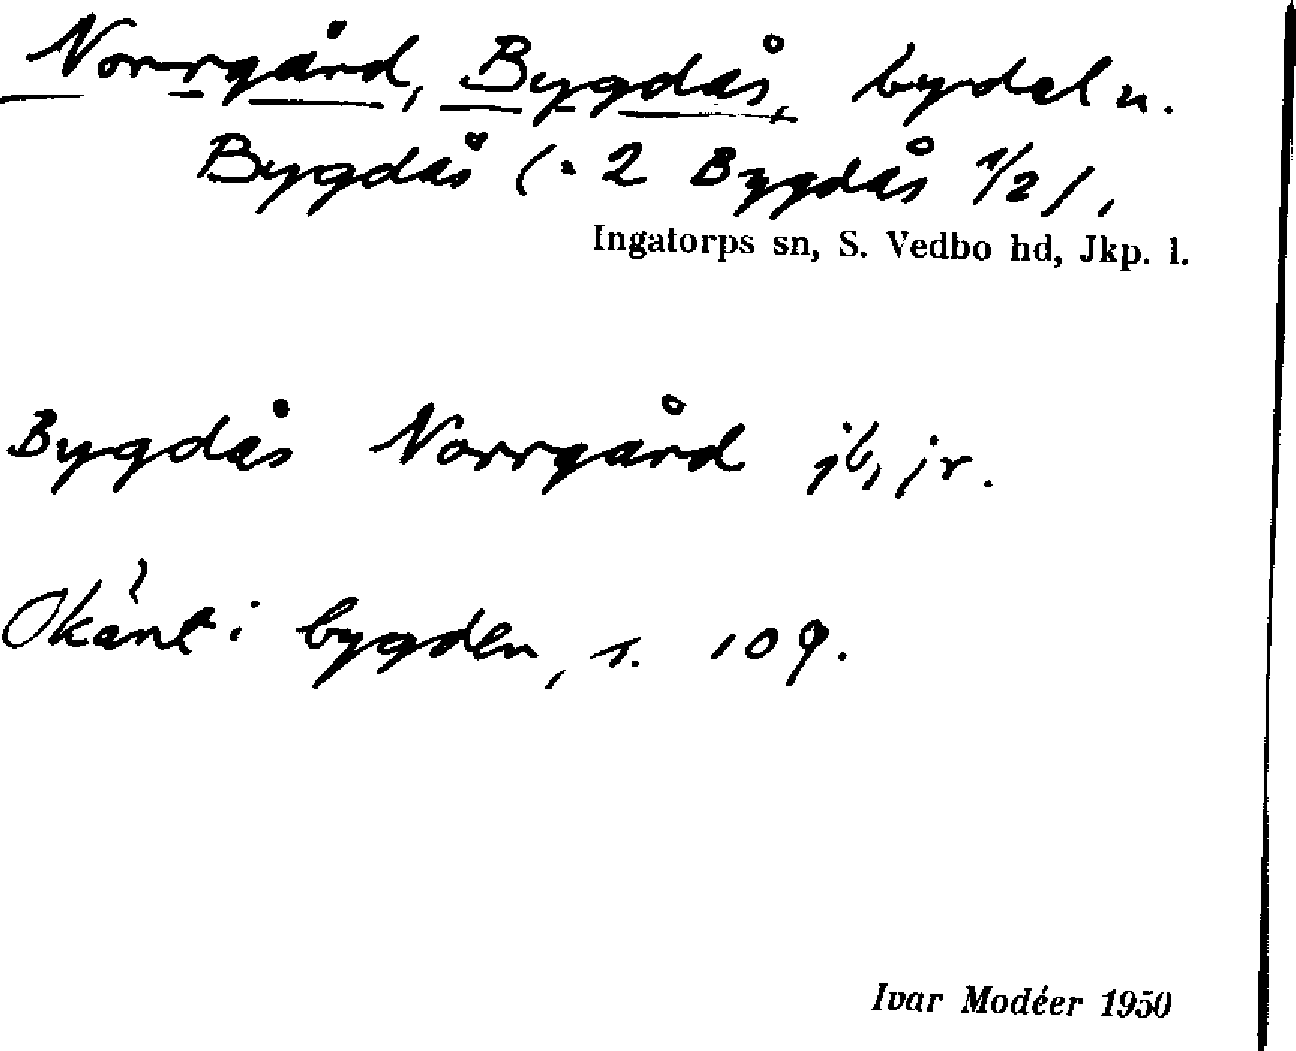 Norrgård, Bygdås, bydel u.
Bygdås (= 2 Bygdås 1/2),
Ingatorps sn, S. Vedbo hd, Jkp. l.
Bygdås Norrgård jb, jr.
Okänt i bygden, s. 109.
Ivar Modéer 1950